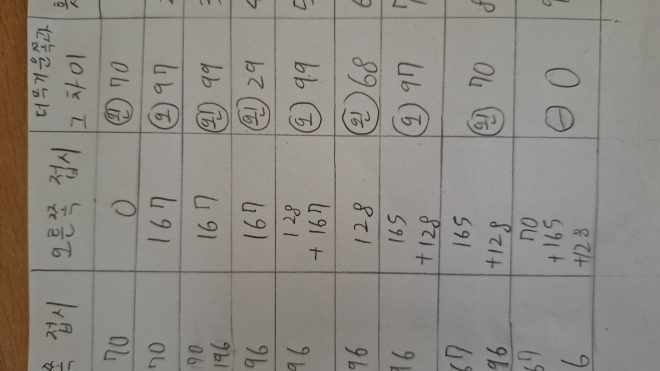 쪽 접시 오른쪽 접시 더 무거운 쪽과
그 차이
70 0 왼 70
70 167 오 97
70 167 왼 99
196
96 167 왼 29
96 128 오 99
+167
96 128 왼 68
96 165 오 97
+128
67 165 왼 70
96 +128
67 70 - 0
6 +165
+128